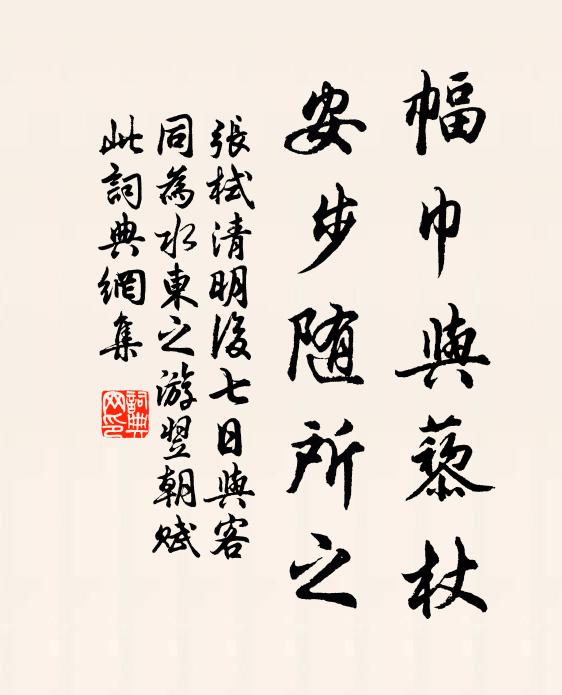 幅巾與藜杖
安步随所之
張栻清明後七日與客
同為水東之游翌朝賦
此詞典網集
詞典
网印